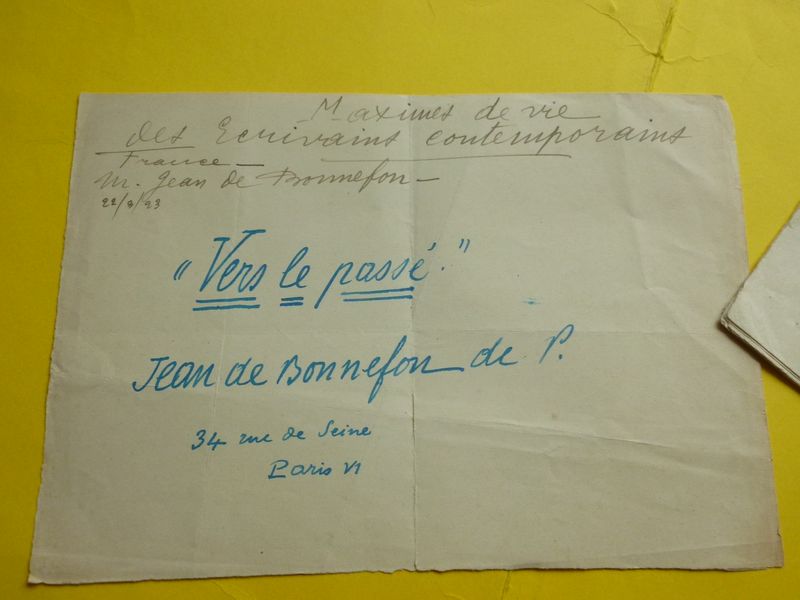 Maximes de vie
des Ecrivains contemporains
France —
M. Jean de Bonnefon —
22/8/23
"Vers le passé."
Jean de Bonnefon de P.
34 rue de Seine
Paris VI